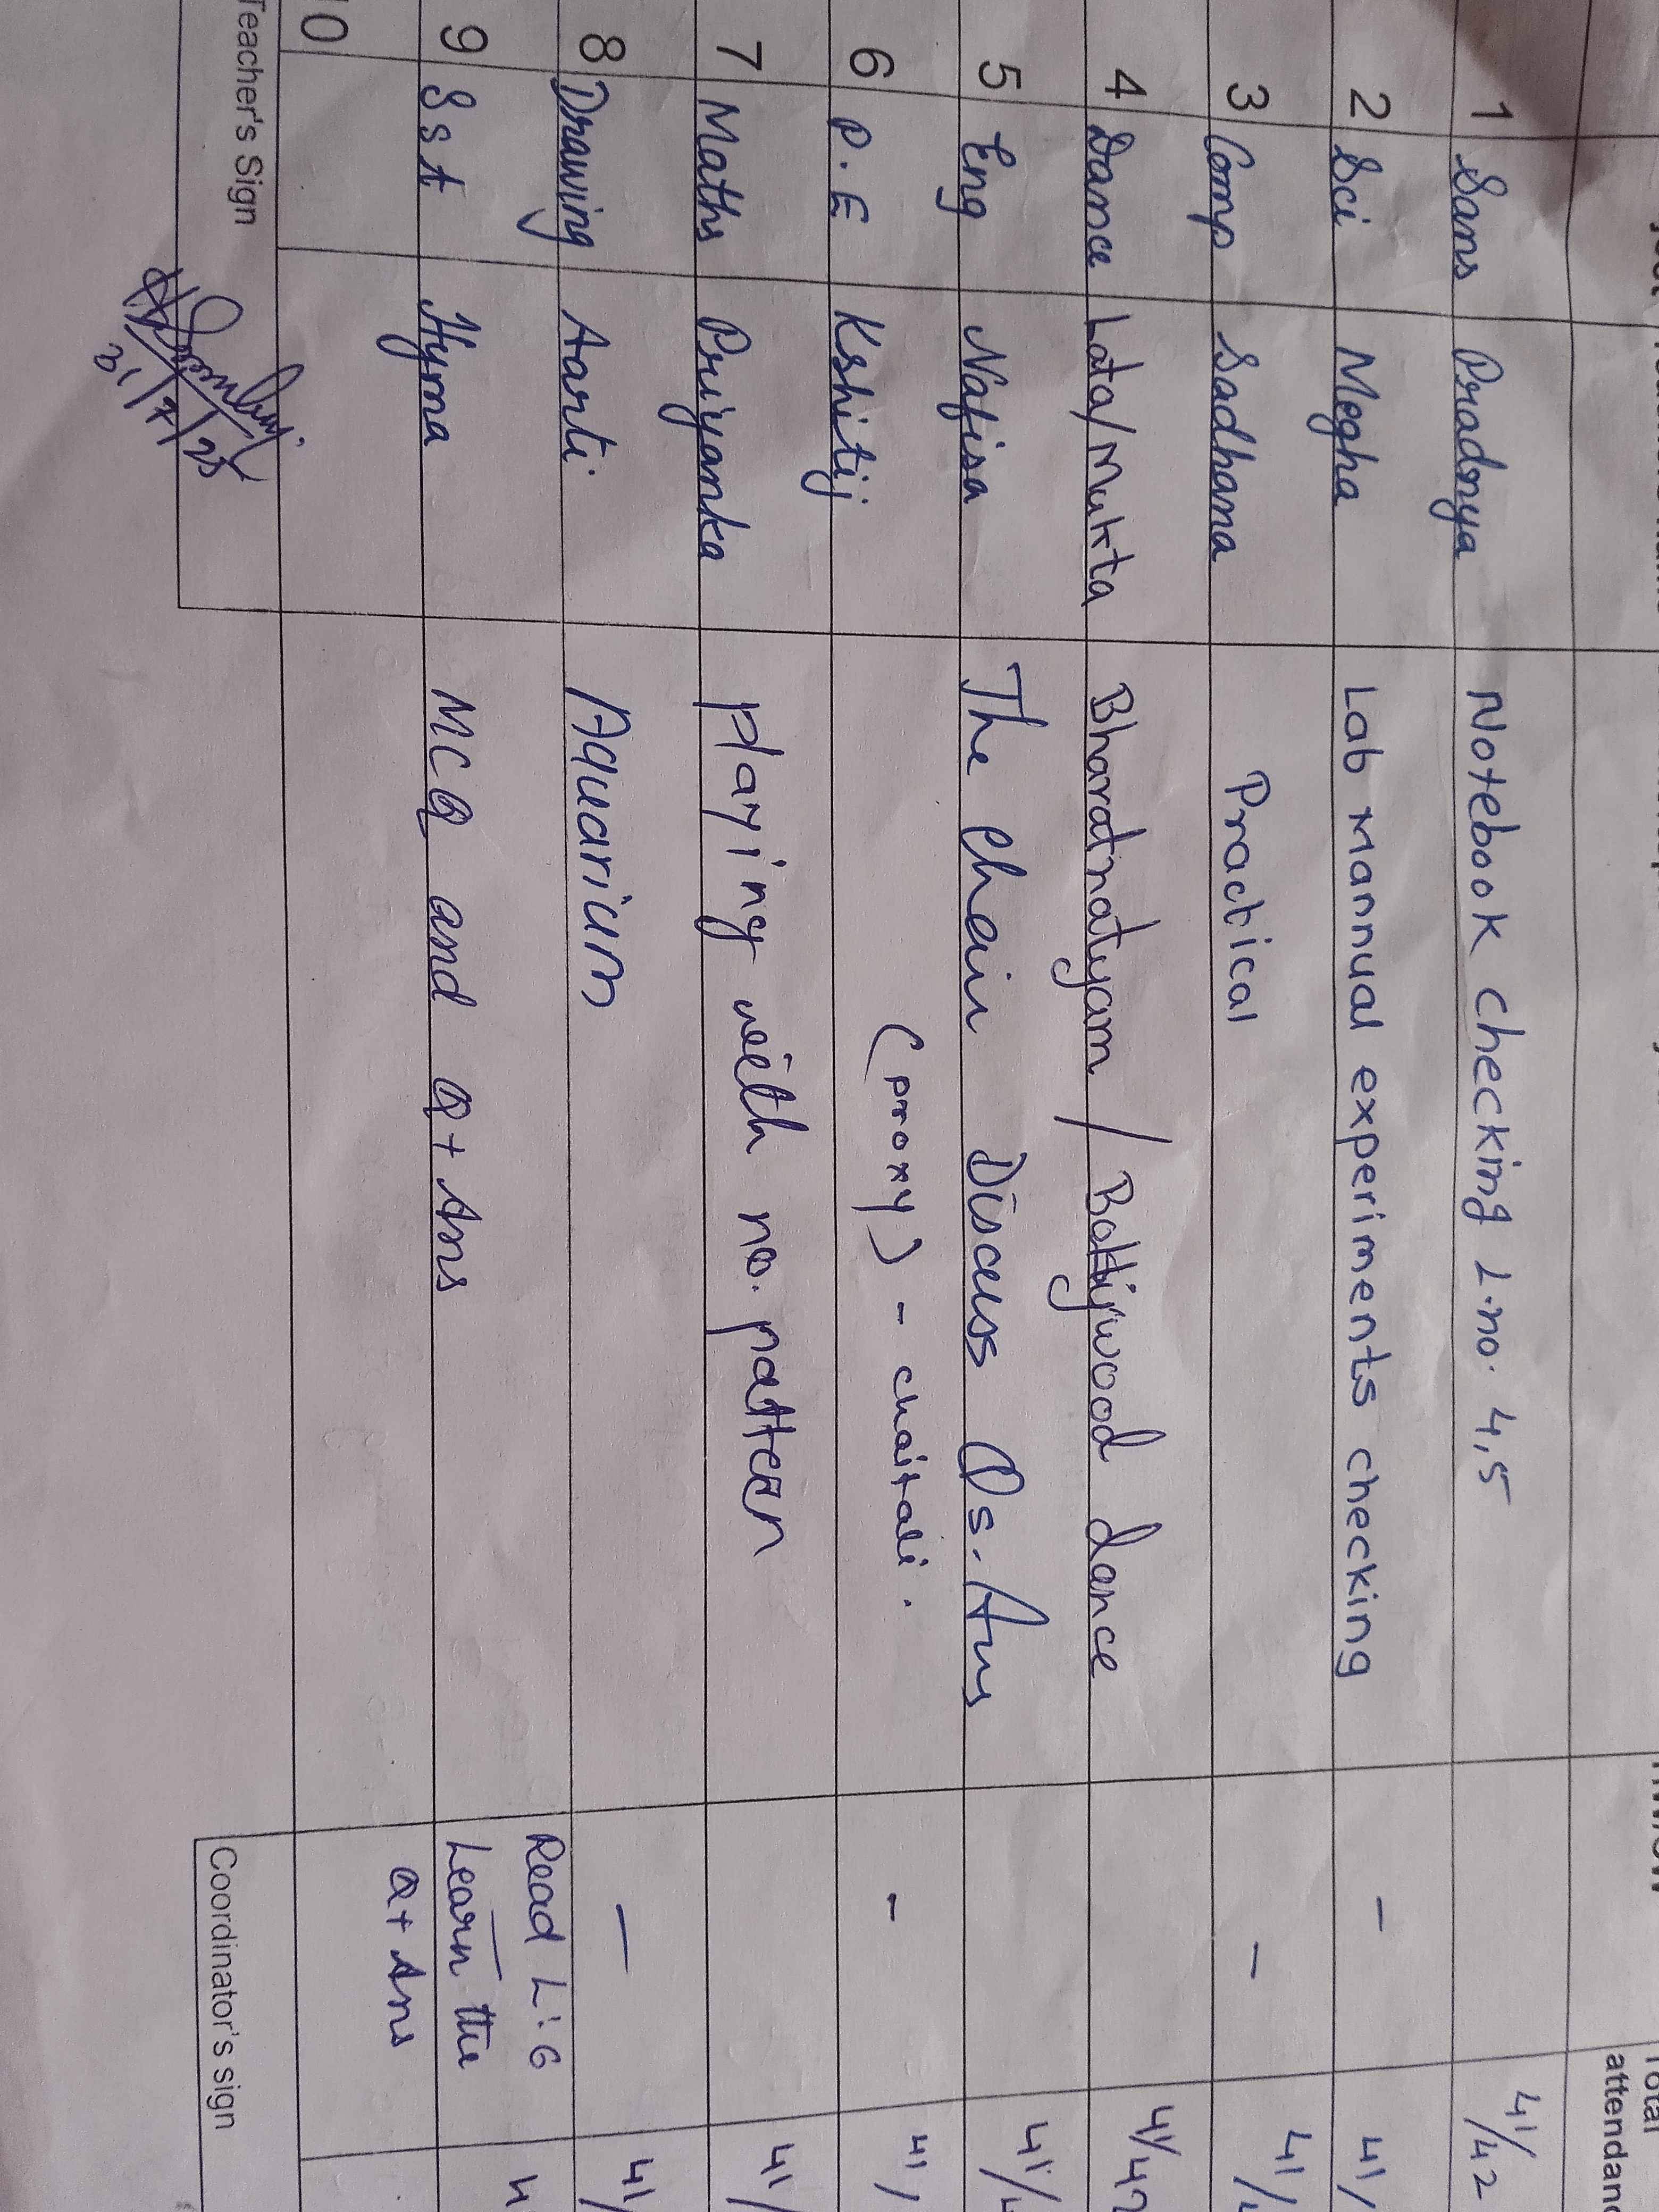 Total
attendance
1 Sans Pradnya Notebook checking L.no. 4,5 41/42
2 Sci Megha Lab mannual experiments checking - 41/
3 Comp Sadhana Practical - 41/
4 Dance Lata/Mukta Bharatnatyam / Bollywood dance 41/42
5 Eng Nafisa The Chair Discuss Qs.Ans 41/4
6 P.E Kshitij (proxy) - chaitali. - 41/
7 Maths Priyanka playing with no. pattern 41/
8 Drawing Aarti Aquarium - 41/
9 SSt Hyma MCQ and Q+Ans Read L:6 4
Learn the
Q+Ans
10
Teacher's Sign Coordinator's sign